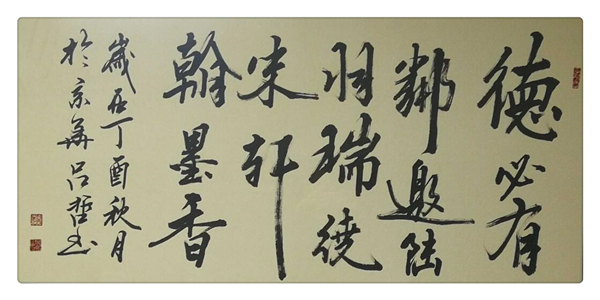 德必有
鄰邀陸
羽瑞繞
朱轩
翰墨香
歲在丁酉秋月
於京華吕哲书